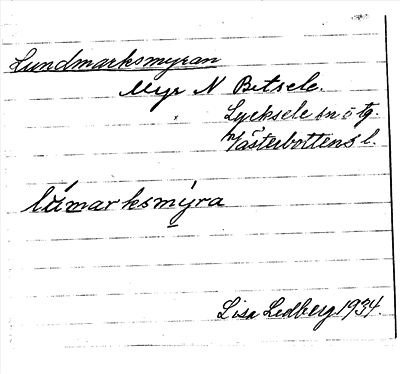 Lundmarksmyran
Myr N Betsele.
Lycksele sn ö tg.
Västerbottens l.
lúmarksmýra
Lisa Ledberg 1934.